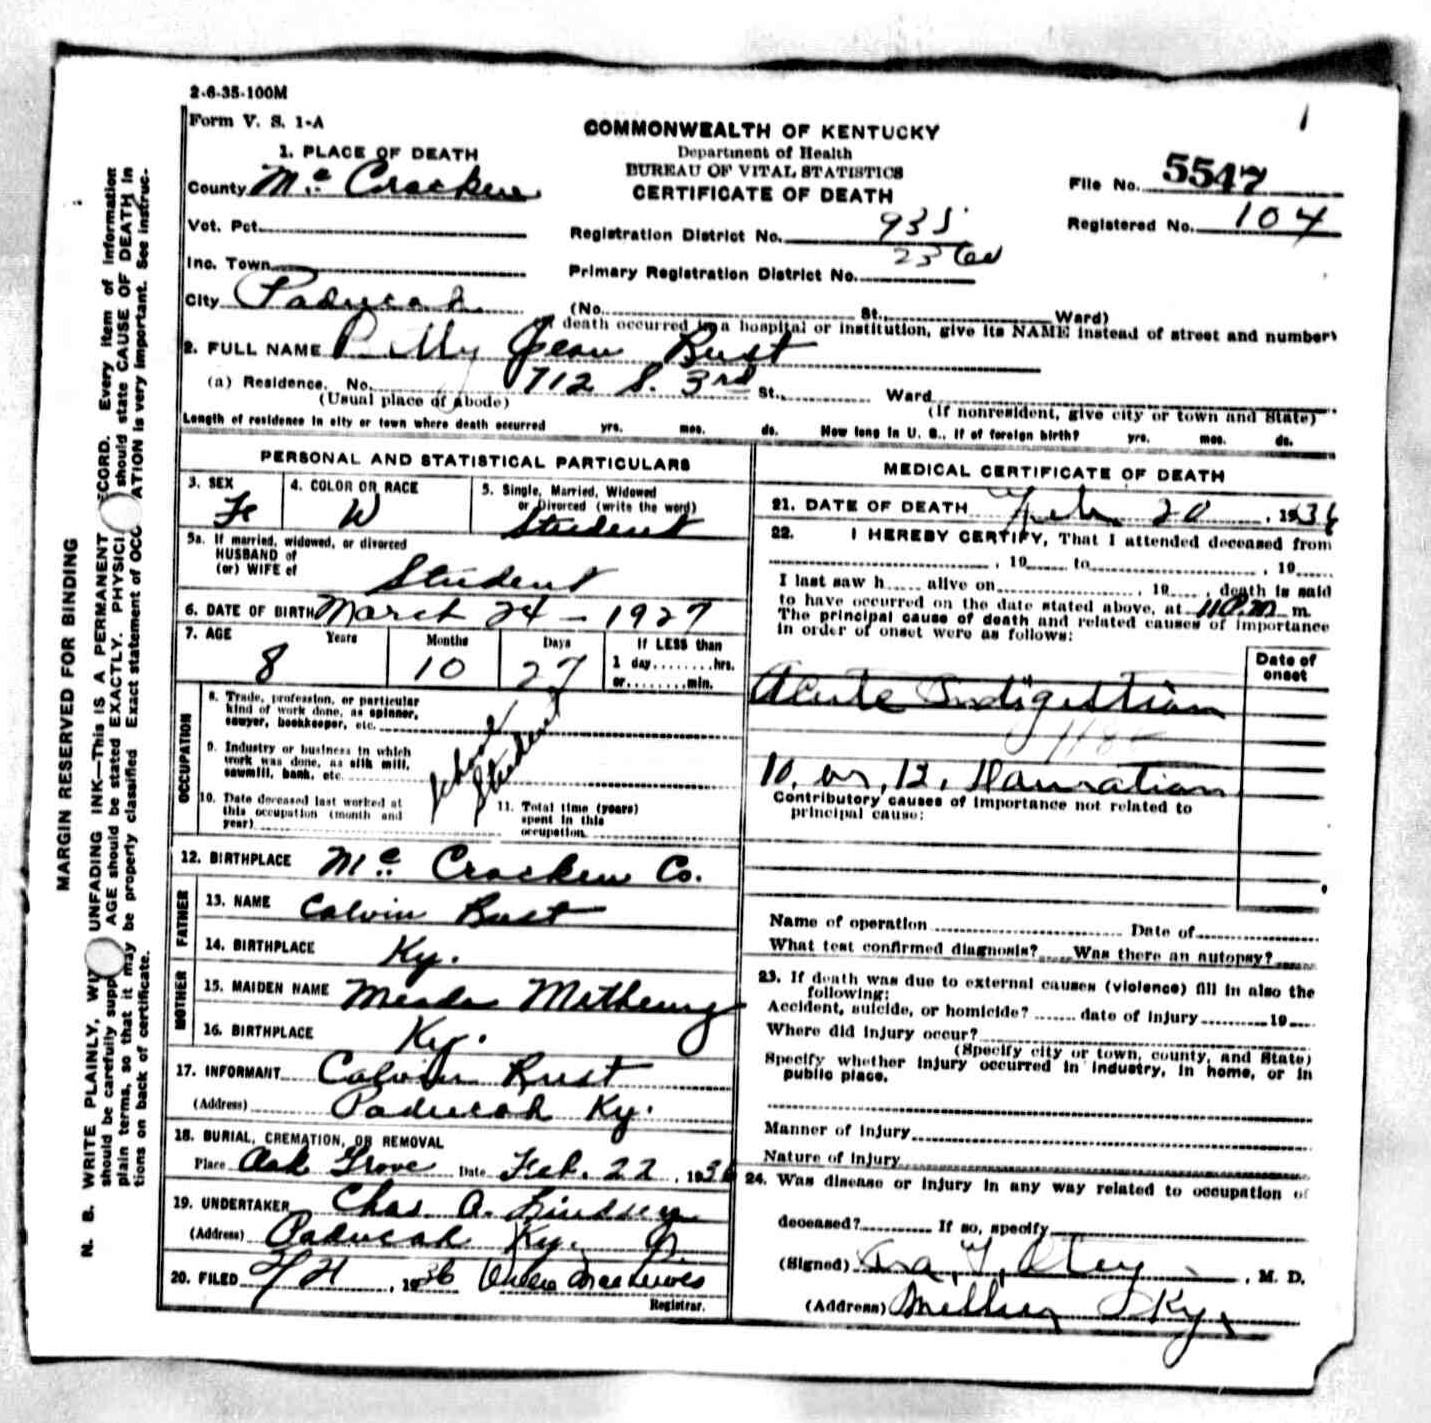 2-6-35-100M
Form V. S. 1-A
COMMONWEALTH OF KENTUCKY
Department of Health
BUREAU OF VITAL STATISTICS
CERTIFICATE OF DEATH
File No. 5547
Registered No. 104
1. PLACE OF DEATH
County Mc Cracken
Vot. Pct.
Inc. Town
City Paducah
Registration District No. 935
Primary Registration District No.
(No. St., Ward)
death occurred in a hospital or institution, give its NAME instead of street and number)
2. FULL NAME Jean Bust
(a) Residence. No. 712 S. 3rd St., Ward
(Usual place of abode)
(If nonresident, give city or town and State)
Length of residence in city or town where death occurred yrs. mos. ds. How long in U. S., if of foreign birth? yrs. mos. ds.
PERSONAL AND STATISTICAL PARTICULARS
3. SEX Fe
4. COLOR OR RACE W
5. Single, Married, Widowed
or Divorced (write the word)
Student
5a. If married, widowed, or divorced
HUSBAND of
(or) WIFE of Student
6. DATE OF BIRTH March 24 - 1927
7. AGE Years Months Days If LESS than
8 10 27 1 day........hrs.
or........min.
OCCUPATION
8. Trade, profession, or particular
kind of work done, as spinner,
sawyer, bookkeeper, etc.
9. Industry or business in which
work was done, as silk mill,
sawmill, bank, etc.
School
Student
10. Date deceased last worked at
this occupation (month and
year)
11. Total time (years)
spent in this
occupation
12. BIRTHPLACE Mc Cracken Co.
FATHER
13. NAME Calvin Bust
14. BIRTHPLACE Ky.
MOTHER
15. MAIDEN NAME
16. BIRTHPLACE Ky.
17. INFORMANT Calvin Rust
(Address) Paducah Ky.
18. BURIAL, CREMATION, OR REMOVAL
Place Oak Grove Date Feb. 22, 1936
19. UNDERTAKER Chas A. Lindsey
(Address) Paducah Ky.
20. FILED , 1936
Registrar.
MEDICAL CERTIFICATE OF DEATH
21. DATE OF DEATH Feb 20, 1936
22. I HEREBY CERTIFY, That I attended deceased from
, 19 to , 19
I last saw h alive on , 19 , death is said
to have occurred on the date stated above, at m.
The principal cause of death and related causes of importance
in order of onset were as follows:
Date of
onset
Acute Indigestion
10, or, 12,
Contributory causes of importance not related to
principal cause:
Name of operation Date of
What test confirmed diagnosis? Was there an autopsy?
23. If death was due to external causes (violence) fill in also the
following:
Accident, suicide, or homicide? date of injury 19
Where did injury occur?
(Specify city or town, county, and State)
Specify whether injury occurred in industry, in home, or in
public place.
Manner of injury
Nature of injury
24. Was disease or injury in any way related to occupation of
deceased? If so, specify
(Signed) , M. D.
(Address) Ky.
MARGIN RESERVED FOR BINDING
N. B. WRITE PLAINLY, UNFADING INK—This is a PERMANENT Every item of information
should be carefully AGE should be stated EXACTLY. should state CAUSE OF DEATH in
plain terms, so that it may be properly classified. Exact statement of is very important. See instruc-
tions on back of certificate.